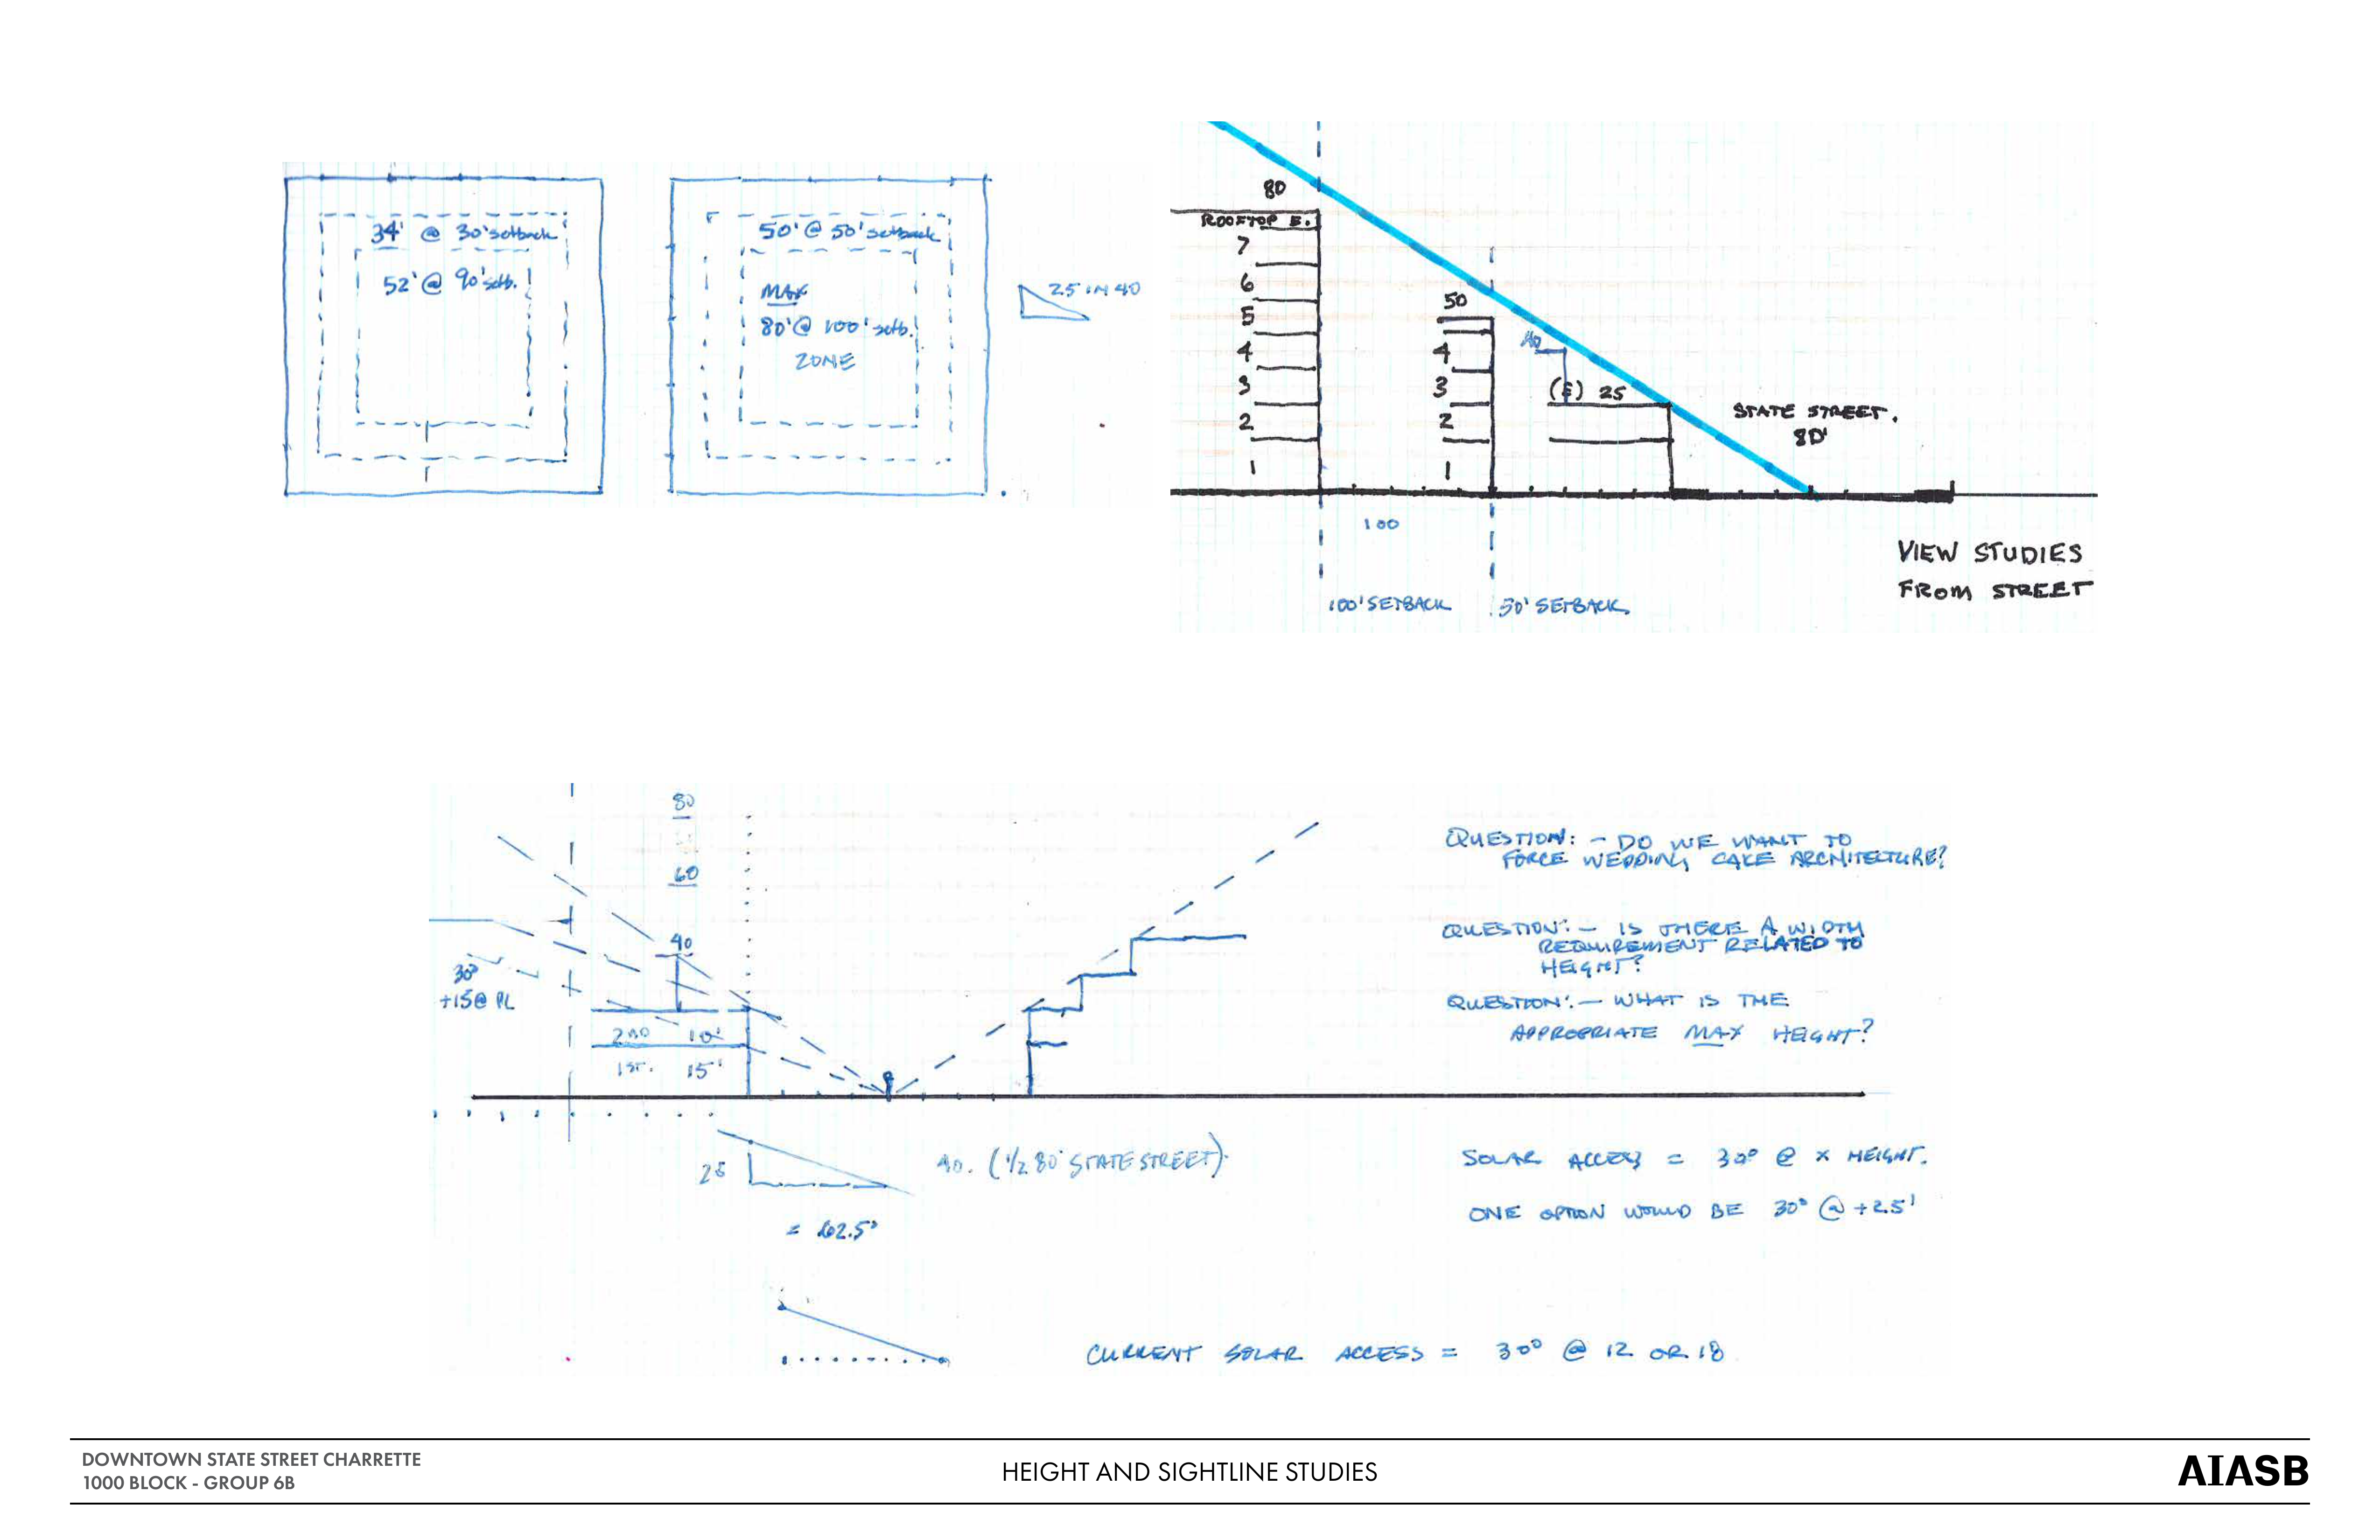 34' @ 30' setback
52' @ 90' setb.
50' @ 50' setback
MAX
80' @ 100' setb.
ZONE
25 IN 40
80
ROOFTOP E.
7
6
5
4
3
2
1
50
4
3
2
1
40
(E) 25
STATE STREET.
80'
100
100' SETBACK
50' SETBACK
VIEW STUDIES
FROM STREET
80
60
40
30°
+15@ PL
2ND 10'
1ST. 15'
QUESTION: - DO WE WANT TO
FORCE WEDDING CAKE ARCHITECTURE?
QUESTION: - IS THERE A WIDTH
REQUIREMENT RELATED TO
HEIGHT?
QUESTION: - WHAT IS THE
APPROPRIATE MAX HEIGHT?
25
40. (1/2 80' STATE STREET)
= 62.5°
SOLAR ACCESS = 30° @ X HEIGHT.
ONE OPTION WOULD BE 30° @ +25'
CURRENT SOLAR ACCESS = 30° @ 12 OR 18
DOWNTOWN STATE STREET CHARRETTE
1000 BLOCK - GROUP 6B
HEIGHT AND SIGHTLINE STUDIES
AIASB